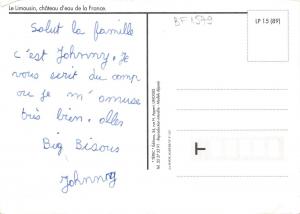 Le Limousin, château d'eau de la France.
BF 1579
LP 15 (89)
Salut la famille
c'est Johnny. Je
vous écrit du camp
ou je m'amuse
très bien. allés
Big Bisous
Johnny
T